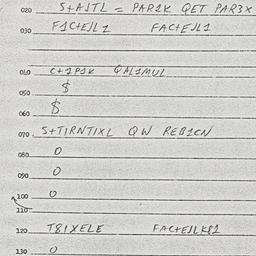 020 S+A1TL = PAR1K QET PAR3X
030 F1C+EJL1 FAC+EJL1
040 C+1P1K QAL1MUL
050 $
060 $
070 S+T1RNTIXL QW REB1CN
080 0
090 0
100 0
110
120 T81XELE FAC+E1LK81
130 0